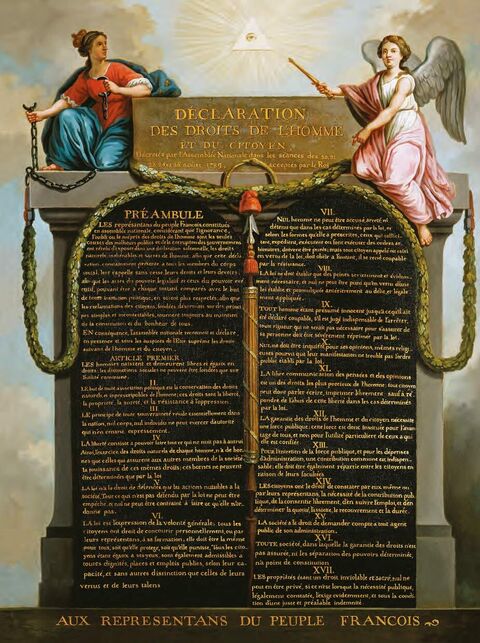 DÉCLARATION
DES DROITS DE L'HOMME
ET DU CITOYEN,
Décrétés par l'Assemblée Nationale dans les séances des 20, 21
aoust 1789, acceptés par le Roi
PRÉAMBULE
LES représentans du peuple François, constitués
en assemblée nationale, considérant que l'ignorance,
l'oubli ou le mépris des droits de l'homme sont les seules
causes des malheurs publics et de la corruption des gouvernemens
ont résolu d'exposer dans une déclaration solemnelle, les droits
naturels, inaliénables et sacrés de l'homme, afin que cette déclaration
constamment présente à tous les membres du corps
social, leur rappelle sans cesse leurs droits et leurs devoirs,
afin que les actes du pouvoir législatif et ceux du pouvoir exécutif,
pouvant être à chaque instant comparés avec le but
de toute institution politique, en soient plus respectés; afin que
les réclamations des citoyens, fondées désormais sur des principes
simples et incontestables, tournent toujours au maintien
de la constitution et du bonheur de tous.
EN conséquence, l'assemblée nationale reconnoit et déclare,
en présence et sous les auspices de l'Etre suprême les droits
suivans de l'homme et du citoyen.
ARTICLE PREMIER.
LES hommes naissent et demeurent libres et égaux en
droits; les distinctions sociales ne peuvent être fondées que sur
l'utilité commune.
II.
LE but de toute association politique est la conservation des droits
naturels et imprescriptibles de l'homme; ces droits sont la liberté,
la propriété, la sureté, et la résistance à l'oppression.
III.
LE principe de toute souveraineté réside essentiellement dans
la nation, nul corps, nul individu ne peut exercer d'autorité
qui n'en émane expressément.
IV.
LA liberté consiste à pouvoir faire tout ce qui ne nuit pas à autrui
Ainsi, l'exercice des droits naturels de chaque homme, n'a de bornes
que celles qui assurent aux autres membres de la société
la jouissance de ces mêmes droits; ces bornes ne peuvent
être déterminées que par la loi
V.
LA loi n'a le droit de défendre que les actions nuisibles à la
société. Tout ce qui n'est pas défendu par la loi ne peut être
empêché, et nul ne peut être contraint à faire ce qu'elle n'ordonne
pas.
VI.
LA loi est l'expression de la volonté générale; tous les
citoyens ont droit de concourir personnellement, ou par
leurs représentans, à sa formation; elle doit être la même
pour tous, soit qu'elle protege, soit qu'elle punisse. Tous les
citoyens étant égaux à ses yeux, sont également admissibles à
toutes dignités, places et emplois publics, selon leur capacité,
et sans autres distinction que celles de leurs
vertus et de leurs talens.
VII.
NUL homme ne peut être accusé, arrêté ni
détenu que dans les cas déterminés par la loi, et
selon les formes qu'elle a prescrites. ceux qui sollicitent,
expédient, exécutent ou font exécuter des ordres arbitraires,
doivent être punis; mais tout citoyen appelé ou saisi
en vertu de la loi, doit obéir à l'instant, il se rend coupable
par la résistance.
VIII.
LA loi ne doit établir que des peines strictement et évidemment
nécessaires, et nul ne peut être puni qu'en vertu d'une
loi établie et promulguée antérieurement au délit, et légalement
appliquée.
IX.
TOUT homme étant présumé innocent jusqu'à ce qu'il ait
été déclaré coupable, s'il est jugé indispensable de l'arrêter,
toute rigueur qui ne seroit pas nécessaire pour s'assurer de
sa personne doit être sévèrement réprimée par la loi.
NUL ne doit être inquiété pour ses opinions, mêmes religieuses
pourvu que leur manifestation ne trouble pas l'ordre
public établi par la loi.
XI.
LA libre communication des pensées et des opinions
est un des droits les plus précieux de l'homme; tout citoyen
peut donc parler, écrire, imprimer librement, sauf à répondre
de l'abus de cette liberté dans les cas déterminés
par la loi.
XII.
LA garantie des droits de l'homme et du citoyen nécessite
une force publique; cette force est donc instituée pour l'avantage
de tous, et non pour l'utilité particulière de ceux à qui
elle est confiée.
XIII.
Pour l'entretien de la force publique, et pour les dépenses
d'administration, une contribution commune est indispensable;
elle doit être également répartie entre les citoyens en
raison de leurs facultés.
XIV.
LES citoyens ont le droit de constater par eux même ou
par leurs représentans, la nécessité de la contribution publique,
de la consentir librement, d'en suivre l'emploi, et d'en
déterminer la quotité, l'assiette, le recouvrement et la durée.
XV.
LA société a le droit de demander compte à tout agent
public de son administration.
XVI.
TOUTE société, dans laquelle la garantie des droits n'est
pas assurée, ni les séparation des pouvoirs déterminée,
n'a point de constitution
XVII.
LES propriétés étant un droit inviolable et sacré, nul ne
peut en être privé, si ce n'est lorsque la nécessité publique,
légalement constatée, l'exige évidemment, et sous la condition
d'une juste et préalable indemnité
AUX REPRESENTANS DU PEUPLE FRANCOIS